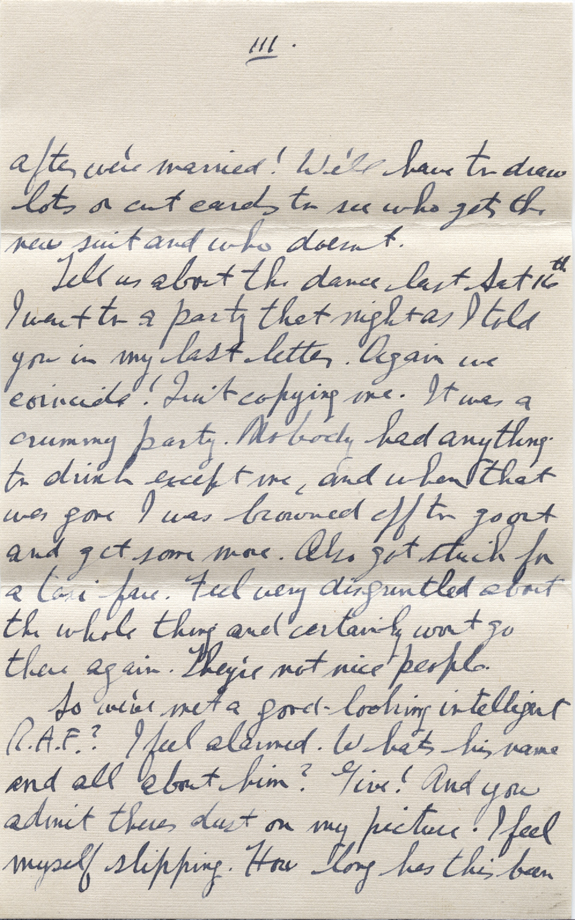 III.
after we're married! We'll have to draw
lots or cut cards to see who gets the
new suit and who doesn't.
Tell us about the dance last Sat 16th
I went to a party that night as I told
you in my last letter. Again we
coincide! Quit copying me. It was a
crummy party. Nobody had anything
to drink except me, and when that
was gone I was browned off to go out
and get some more. Also got stuck for
a taxi fare. Feel very disgruntled about
the whole thing and certainly won't go
there again. They're not nice people.
So we've met a good-looking intelligent
R.A.F.? I feel alarmed. What's his name
and all about him? Give! And you
admit theres dust on my picture. I feel
myself slipping. How long has this been